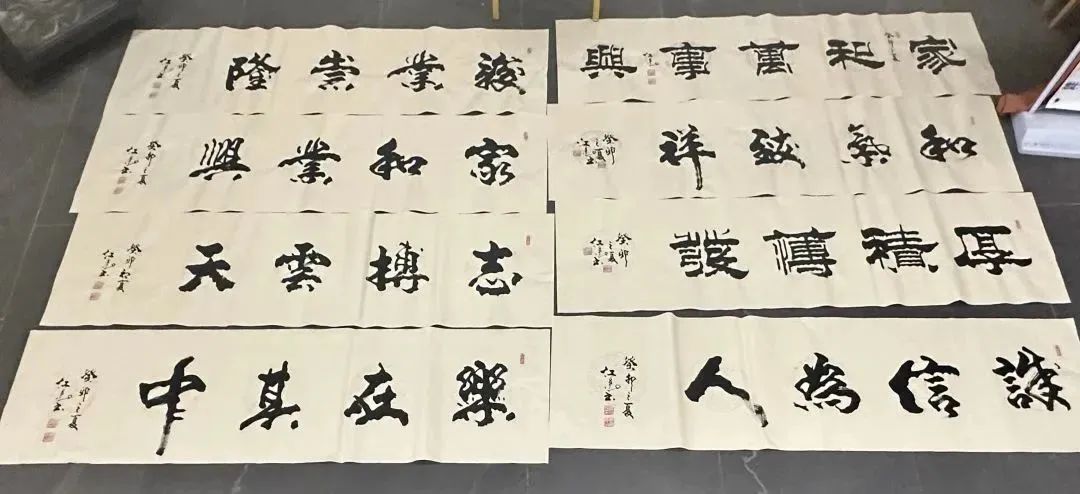 駿業崇隆
癸卯之夏
家和萬事興
癸卯之夏
家和業興
癸卯之夏
和氣致祥
癸卯之夏
志搏雲天
癸卯之夏
厚積薄發
癸卯之夏
樂在其中
癸卯之夏
誠信為人
癸卯之夏